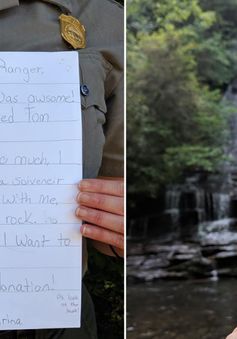 Ranger,
was awsome!
ed Tom
much, I
a soiveneir
with me,
rock.
I want to
onation!
Ps look
on the
back!
rina